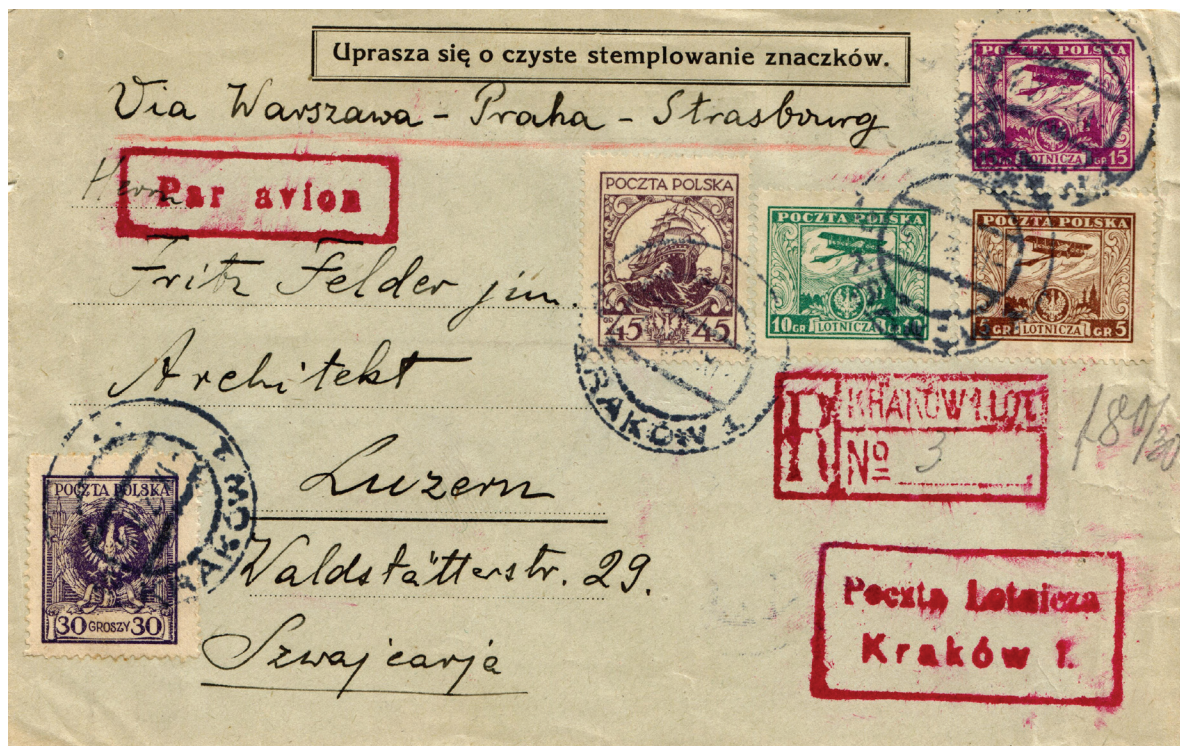 Uprasza się o czyste stemplowanie znaczków.
Via Warszawa - Praha - Strasbourg
Herrn
Par avion
Fritz Felder jun.
Architekt
Luzern
Waldstätterstr. 29.
Szwajcarja
POCZTA POLSKA
15 GR LOTNICZA GR 15
POCZTA POLSKA
GR 45 45
POCZTA POLSKA
10 GR LOTNICZA GR 10
POCZTA POLSKA
5 GR LOTNICZA GR 5
KRAKÓW 1
R
KRAKÓW 1. LOT.
No 3
POCZTA POLSKA
30 GROSZY 30
KRAKÓW 1
Poczta Lotnicza
Kraków 1.